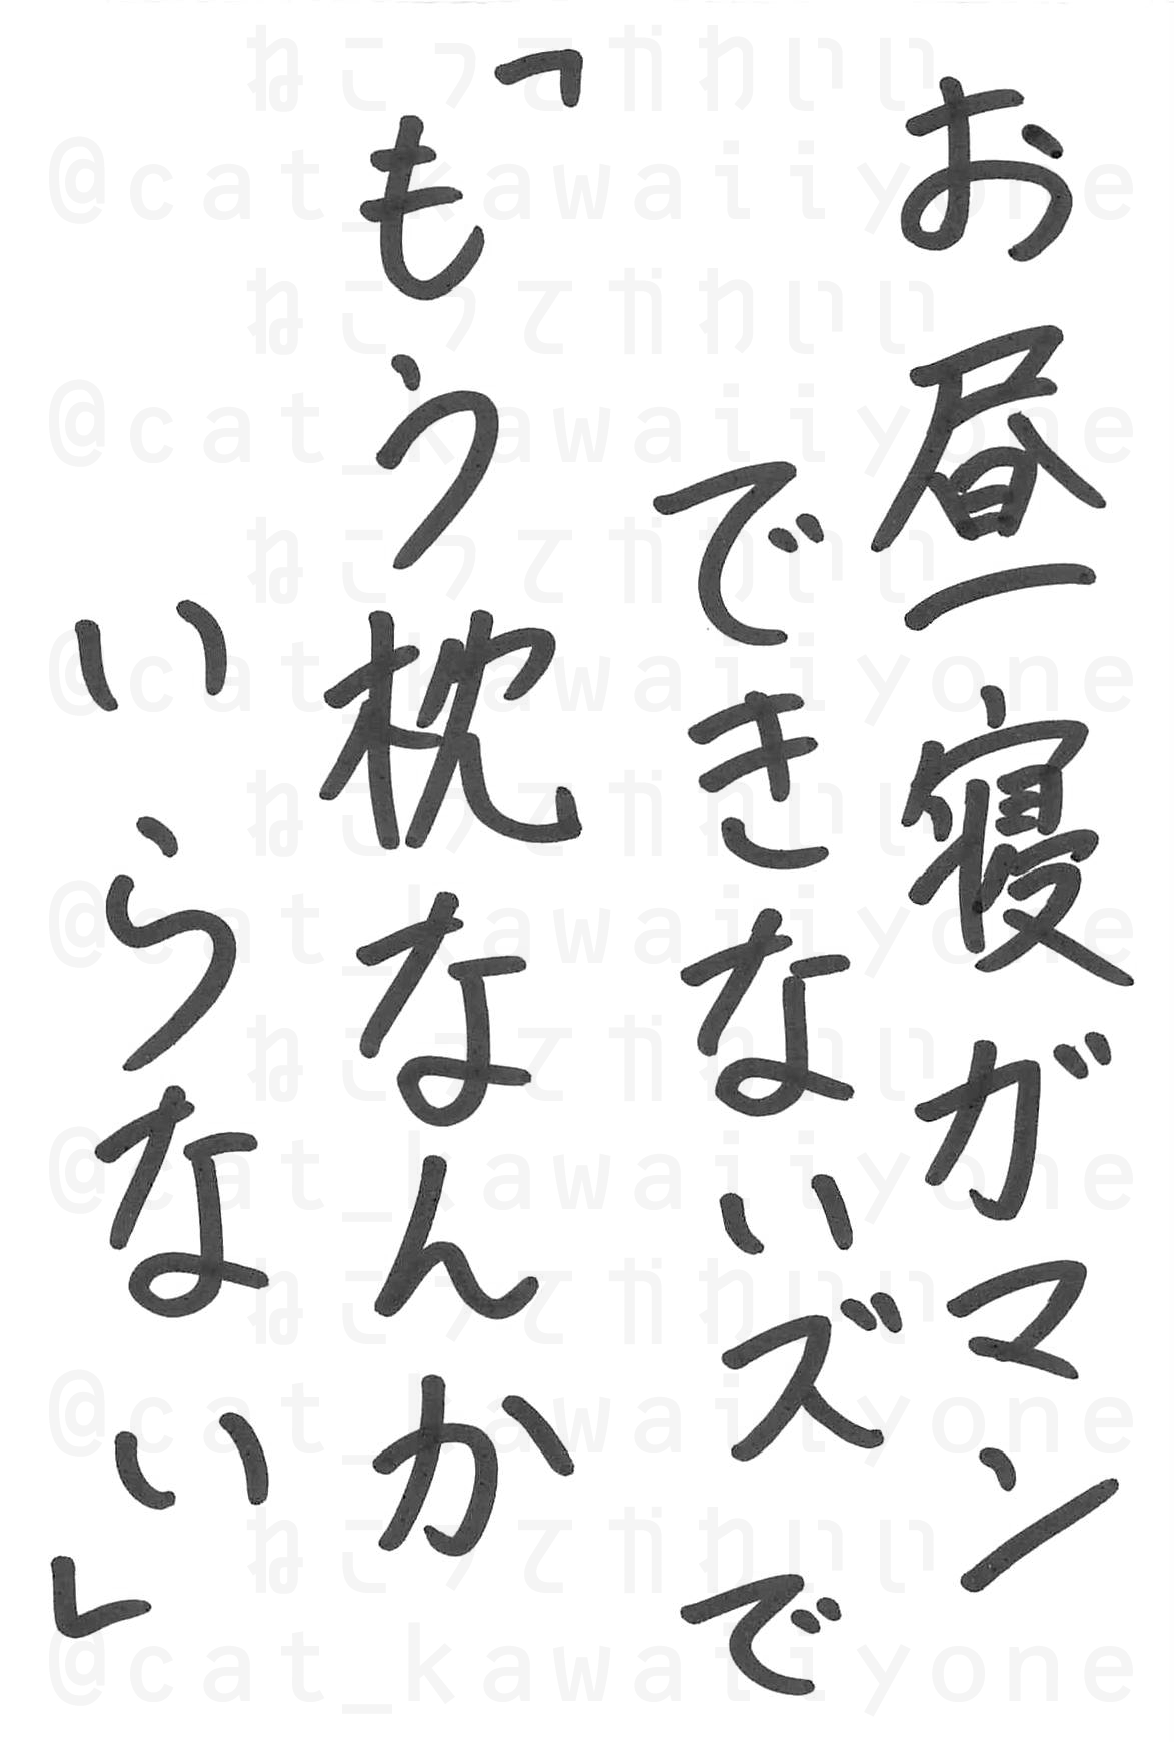 お昼寝ガマン
できないズで
「もう枕なんか
いらない」
ねこってかわいい
@cat_kawaiiyone
ねこってかわいい
@cat_kawaiiyone
ねこってかわいい
@cat_kawaiiyone
ねこってかわいい
@cat_kawaiiyone
ねこってかわいい
@cat_kawaiiyone
ねこってかわいい
@cat_kawaiiyone
ねこってかわいい
@cat_kawaiiyone